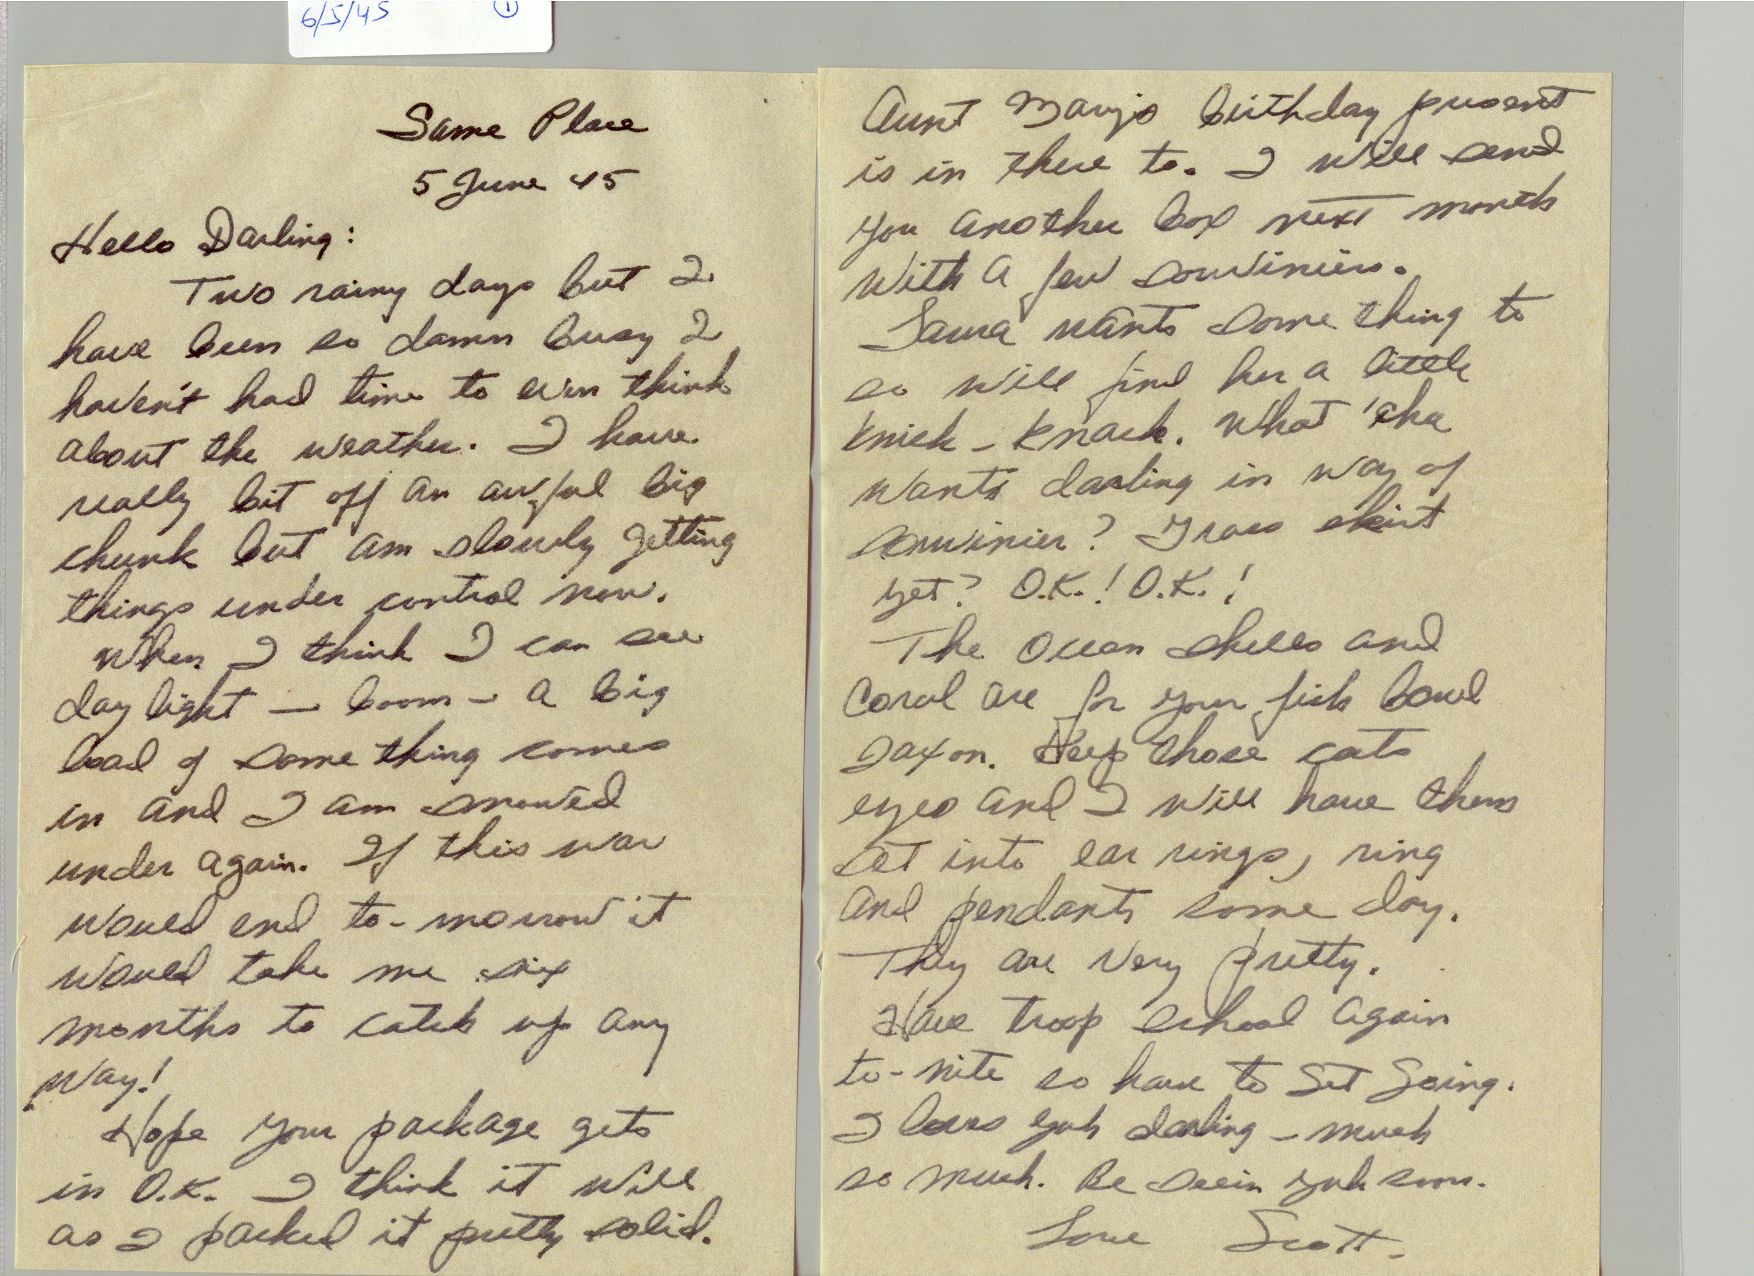 6/5/45 1
Same Place
5 June 45
Hello Darling:
Two rainy days but I
have been so damn busy I
haven't had time to even think
about the weather. I have
really bit off an awful big
chunk but am slowly getting
things under control now.
When I think I can see
day light — boom — a big
load of some thing comes
in and I am snowed
under again. If this war
would end to-morrow it
would take me six
months to catch up any
way!
Hope your package gets
in O.K. I think it will
as I packed it pretty solid.
Aunt Margo birthday present
is in there to. I will send
you another box next month
with a few souviniers.
Laura wants some thing to
so will find her a little
knick-knack. What 'cha
wants darling in way of
souvinier? Grass skirt
yet? O.K.! O.K.!
The Ocean shells and
Coral are for your fish bowl
Jaxon. Keep those cats
eyes and I will have them
set into ear rings, ring
and pendants some day.
They are very pretty.
Have troop school again
to-nite so have to get going.
I loves yuh darling - much
so much. Be seein yuh soon.
Love Scott.